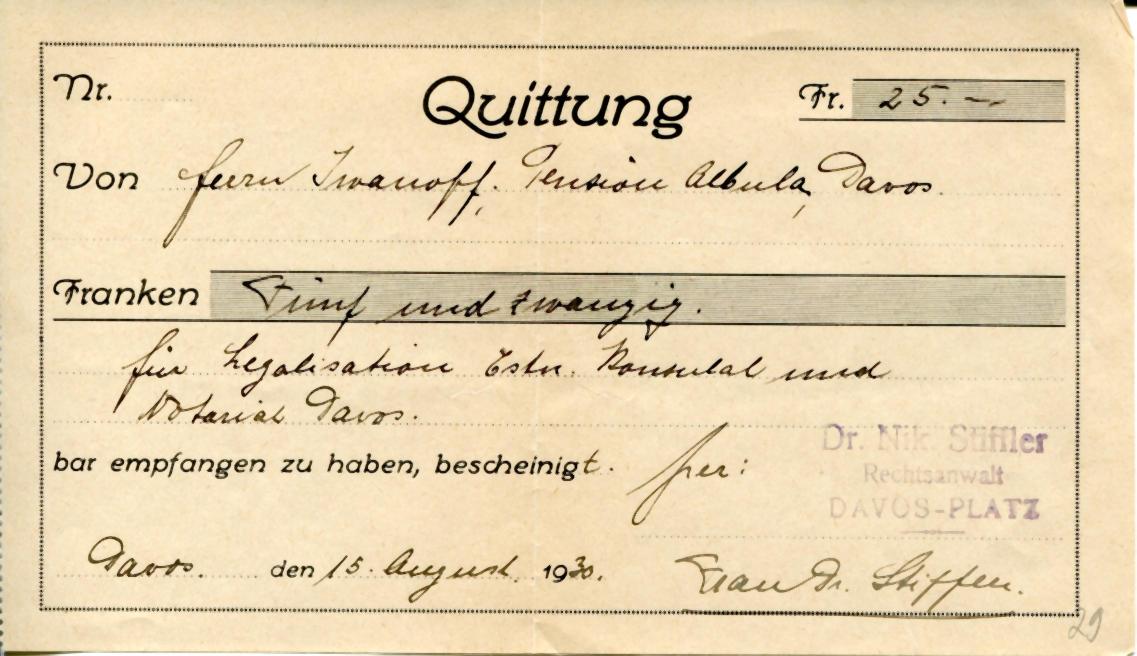 Nr. Quittung Fr. 25.—
Von Herrn Iwanoff, Pension Albula, Davos.
Franken Fünf und zwanzig.
für Legalisation Estn. Konsulat und
Notariat Davos.
bar empfangen zu haben, bescheinigt.
per:
Dr. Nik. Stiffler
Rechtsanwalt
DAVOS-PLATZ
Davos. den 15. August 1930.
Frau Dr. Stiffler.
29